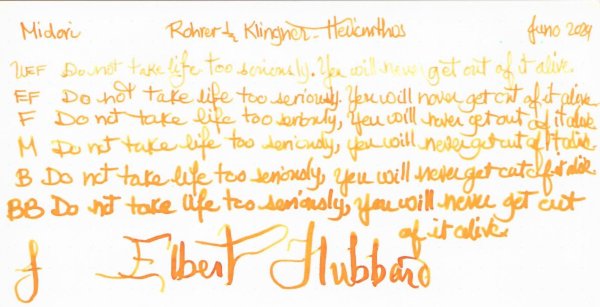 Midori Rohrer & Klingner - Helianthus Juno 2024
UEF Do not take life too seriously. You will never get out of it alive.
EF Do not take life too seriously. You will never get out of it alive.
F Do not take life too seriously, You will never get out of it alive
M Do not take life too seriously, you will never get out of it alive.
B Do not take life too seriously, you will never get out of it alive.
BB Do not take life too seriously, you will never get out
of it alive.
f Elbert Hubbard